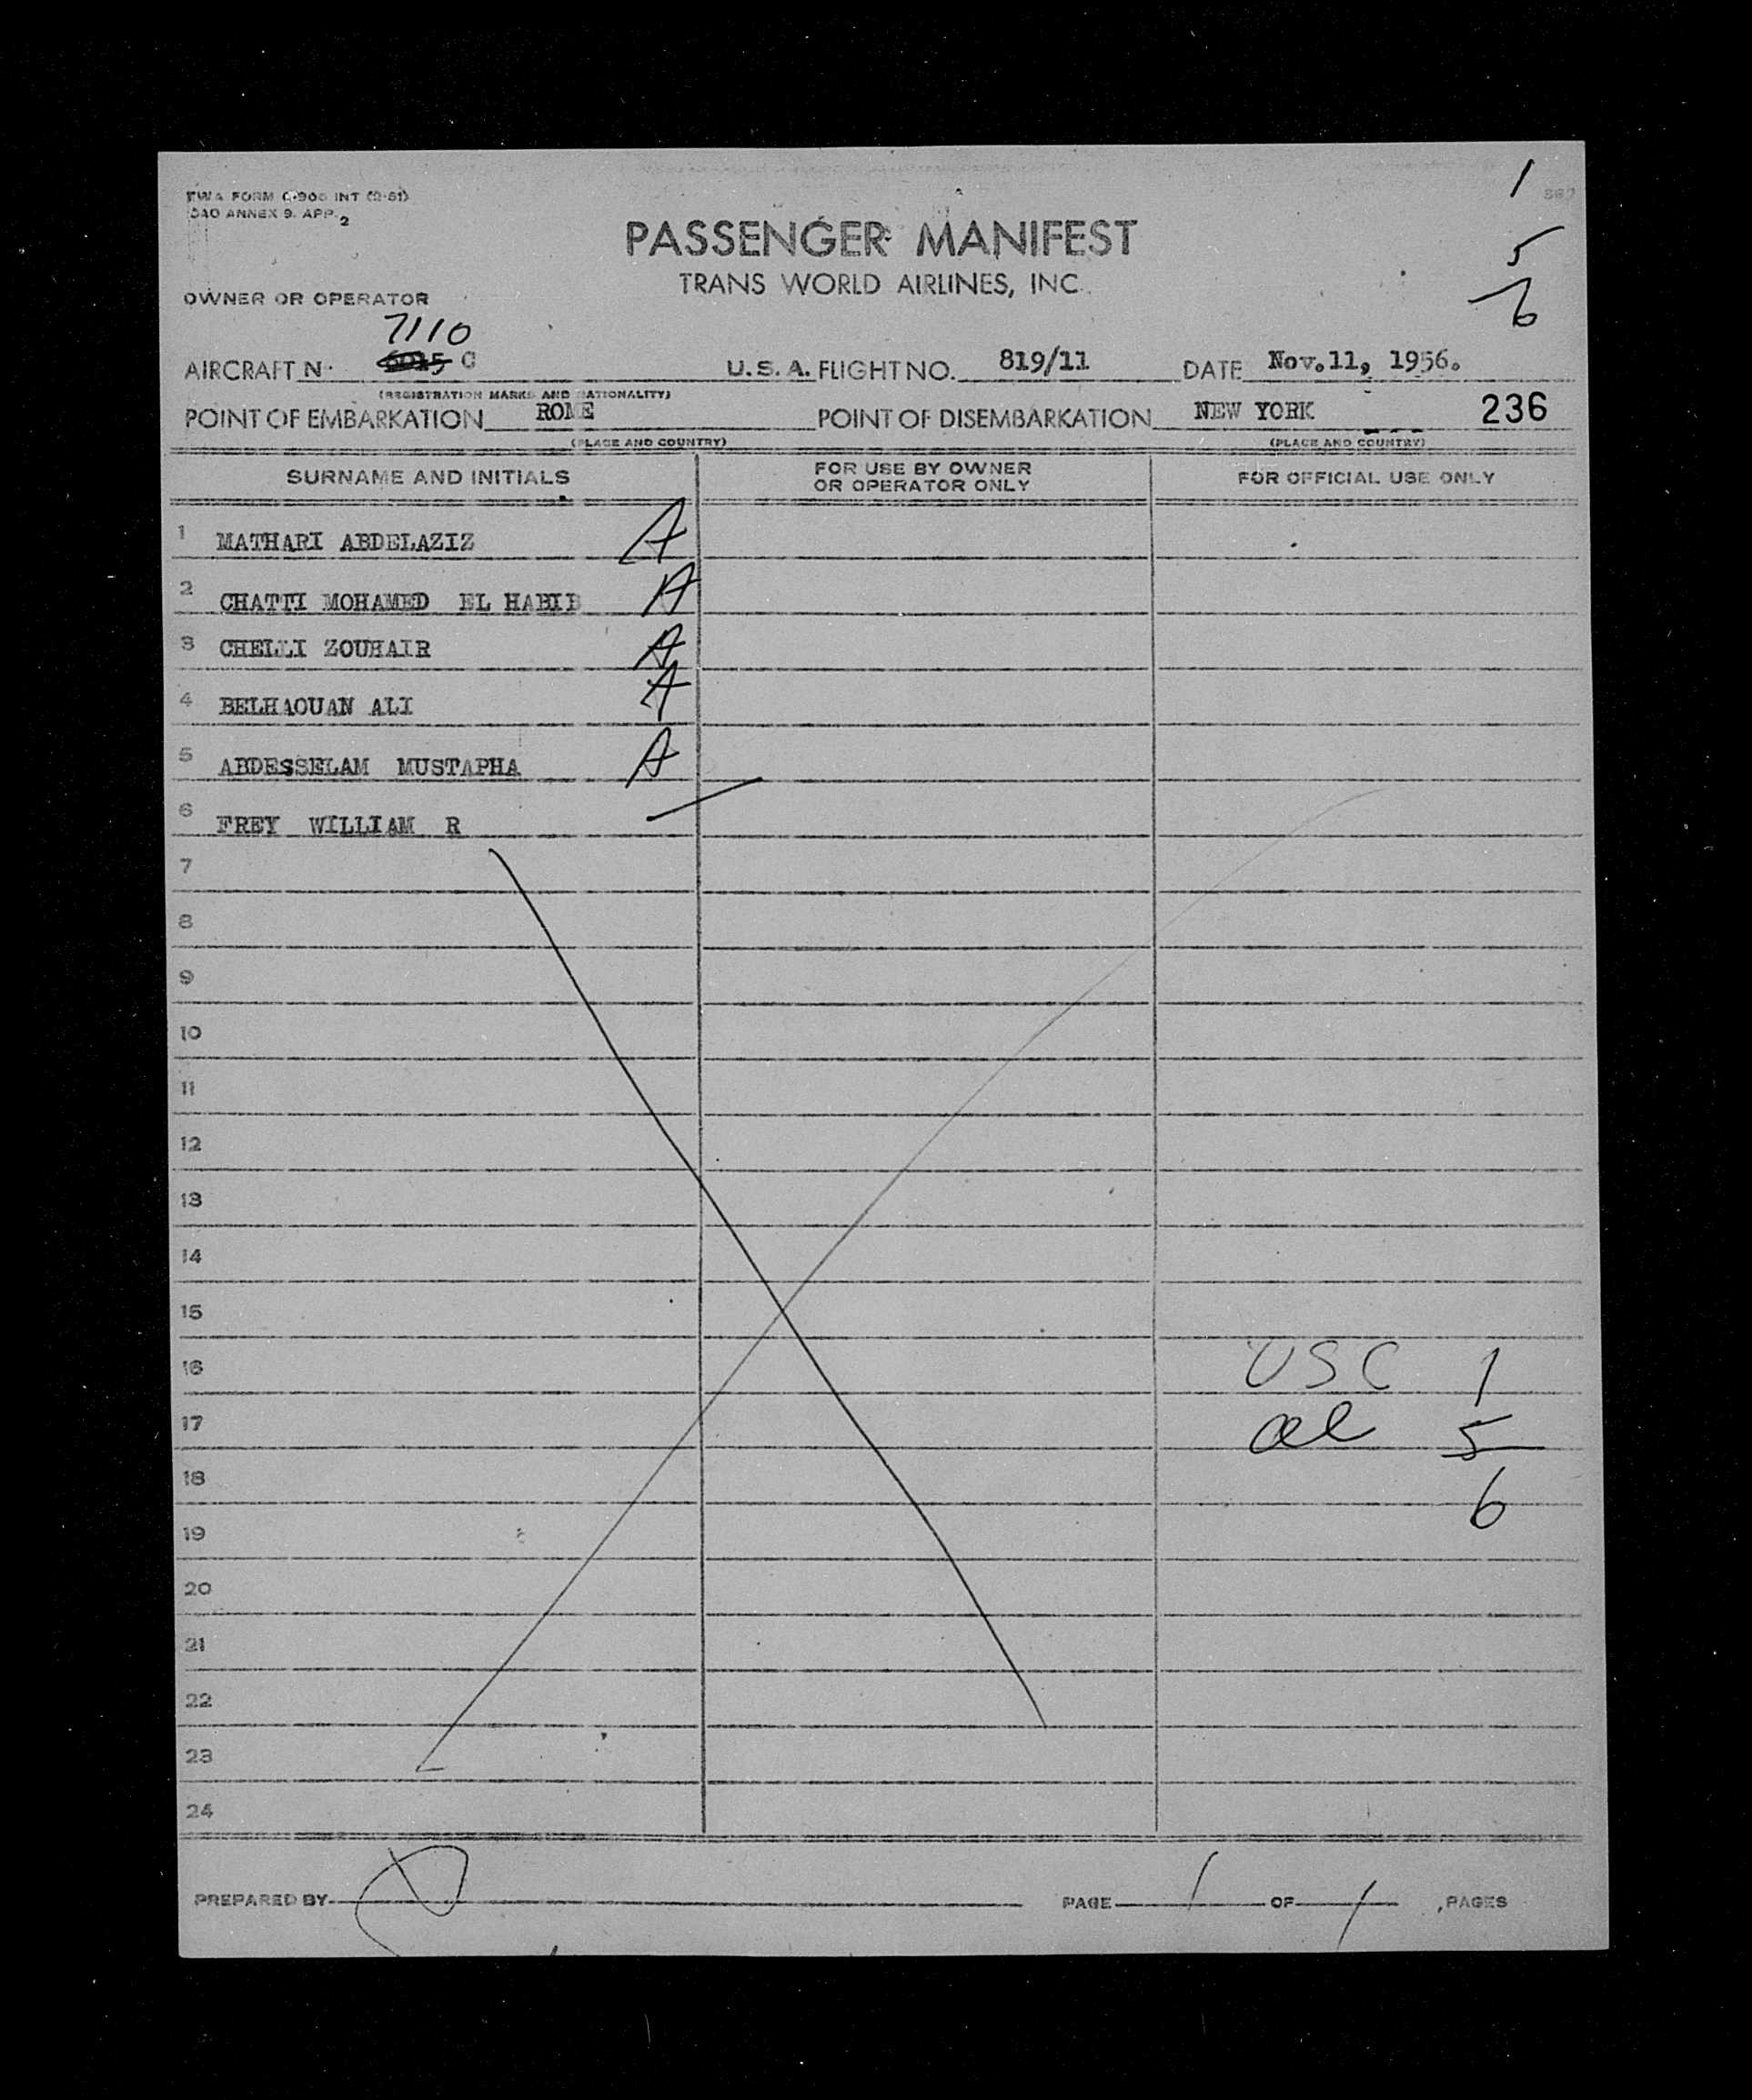 TWA FORM C-900 INT (2-51)
ICAO ANNEX 9. APP. 2
1
5
6
PASSENGER MANIFEST
TRANS WORLD AIRLINES, INC.
OWNER OR OPERATOR
7110
AIRCRAFT N. 6015 C U.S.A. FLIGHT NO. 819/11 DATE Nov.11, 1956.
(REGISTRATION MARKS AND NATIONALITY)
POINT OF EMBARKATION ROME POINT OF DISEMBARKATION NEW YORK 236
(PLACE AND COUNTRY) (PLACE AND COUNTRY)
SURNAME AND INITIALS FOR USE BY OWNER OR OPERATOR ONLY FOR OFFICIAL USE ONLY
1 MATHARI ABDELAZIZ A
2 CHATTI MOHAMED EL HABIB A
3 CHELLI ZOUHAIR A
4 BELHAOUAN ALI A
5 ABDESSELAM MUSTAPHA A
6 FREY WILLIAM R
7
8
9
10
11
12
13
14
15
16 USC 1
17 al 5
18 6
19
20
21
22
23
24
PREPARED BY PAGE 1 OF 1 PAGES